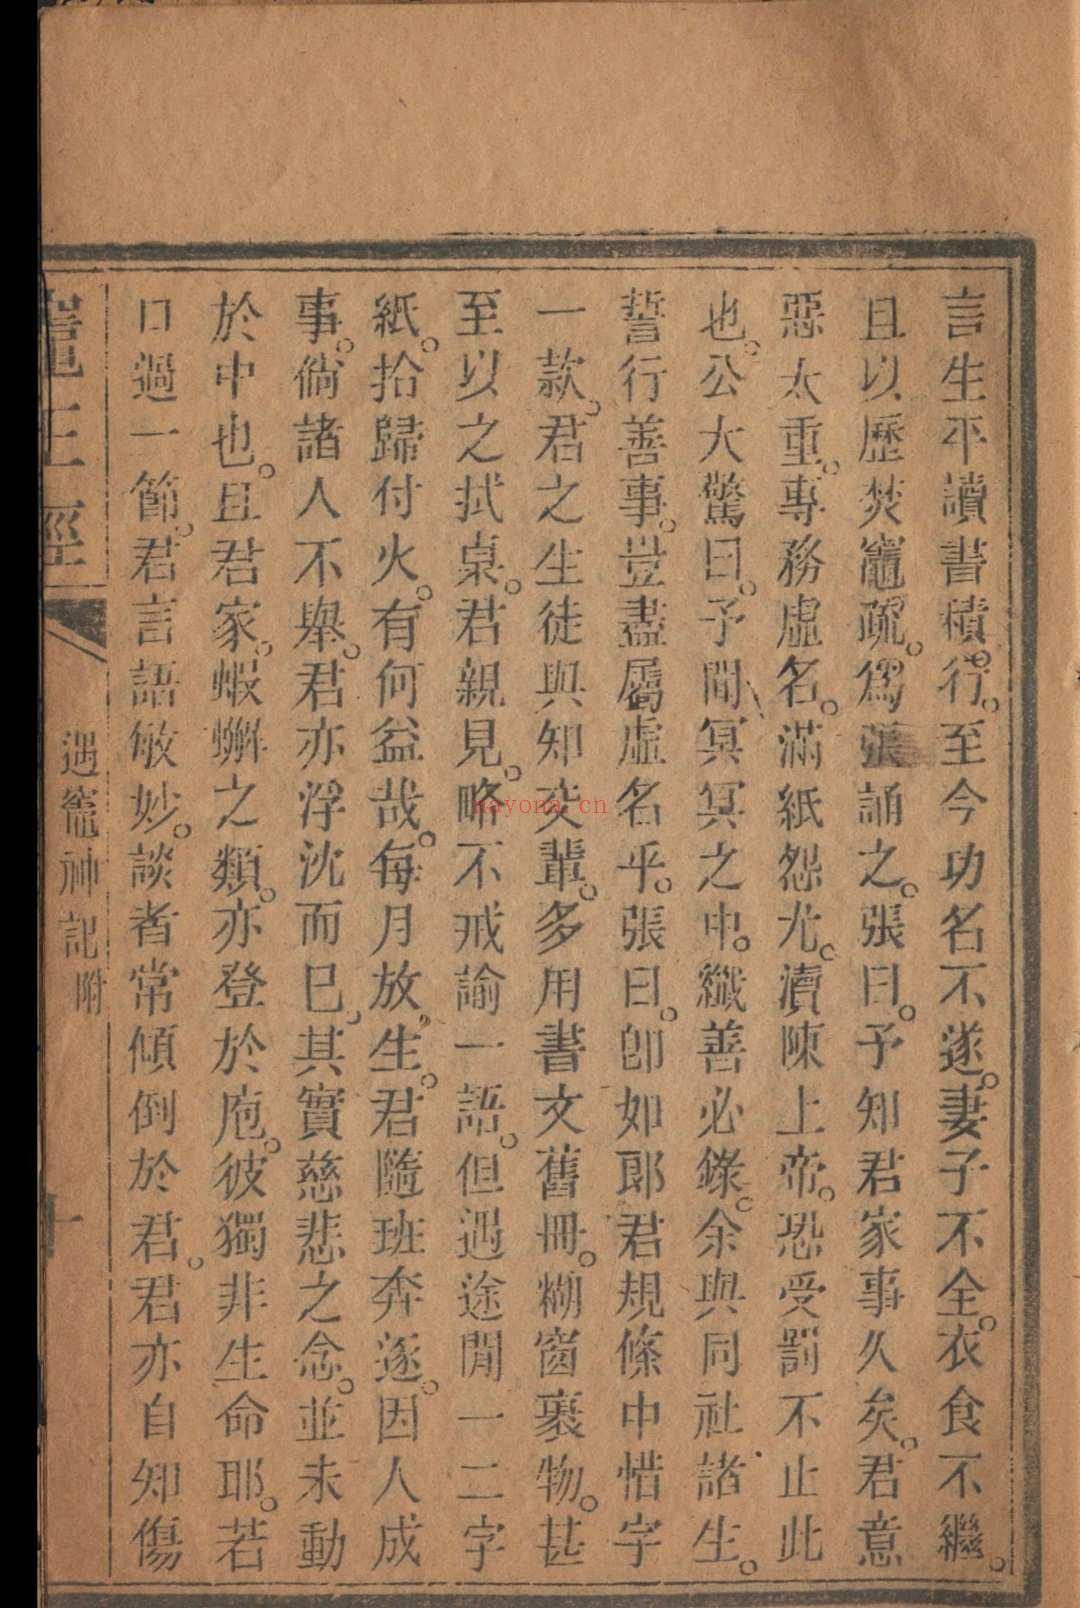 言生平讀書積行。至今功名不遂。妻子不全。衣食不繼。
且以歷焚竈疏。爲張誦之。張曰。予知君家事久矣。君意
惡太重。專務虛名。滿紙怨尤。瀆陳上帝。恐受罰不止此
也。公大驚曰。予聞冥冥之中。纖善必錄。余與同社諸生。
誓行善事。豈盡屬虛名乎。張曰。卽如郞君規條中惜字
一款。君之生徒與知交輩。多用書文舊冊。糊窗裹物。甚
至以之拭桌。君親見。略不戒諭一語。但遇途間一二字
紙。拾歸付火。有何益哉。每月放生。君隨班奔逐。因人成
事。倘諸人不舉。君亦浮沈而已。其實慈悲之念。並未動
於中也。且君家。蝦蠏之類。亦登於庖。彼獨非生命耶。若
口過一節。君言語敏妙。談者常傾倒於君。君亦自知傷
竈王經
遇竈神記附
十一
nayona.cn